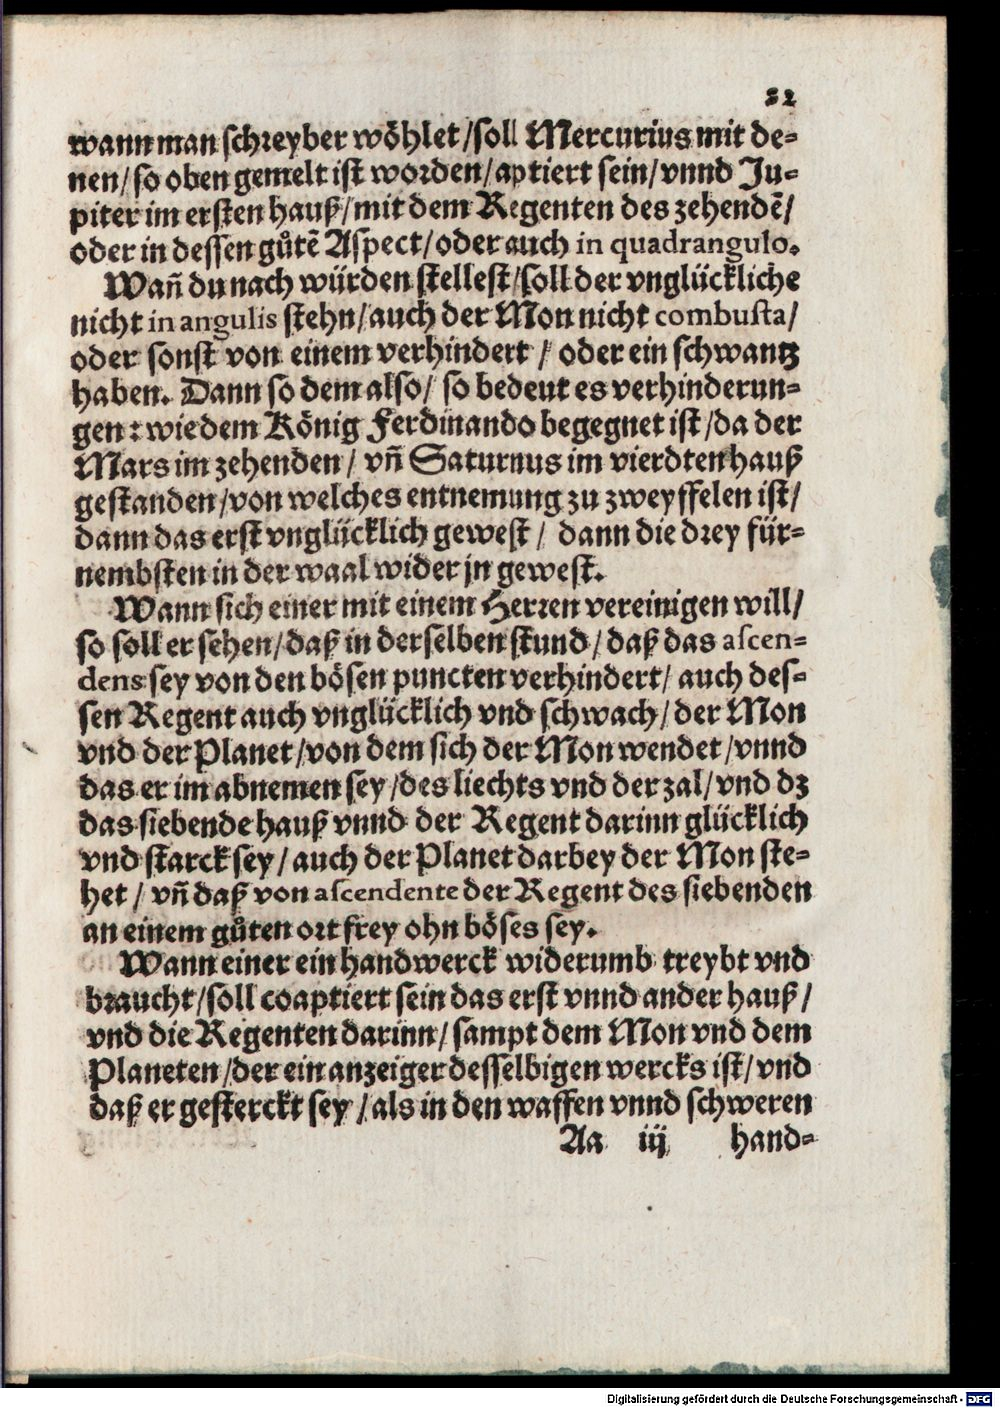 32
wann man schreyber wöhlet/soll Mercurius mit de-
nen/so oben gemelt ist worden/aptiert sein/vnnd Ju-
piter im ersten hauß/mit dem Regenten des zehendẽ/
oder in dessen gůtẽ Aspect/oder auch in quadrangulo.
Wañ du nach würden stellest/soll der vnglückliche
nicht in angulis stehn/auch der Mon nicht combusta/
oder sonst von einem verhindert / oder ein schwantz
haben. Dann so dem also/ so bedeut es verhinderun-
gen: wie dem König Ferdinando begegnet ist/da der
Mars im zehenden/ vñ Saturnus im vierdten hauß
gestanden/von welches entnemung zu zweyffelen ist/
dann das erst vnglücklich gewest / dann die drey für-
nembsten in der waal wider jn gewest.
Wann sich einer mit einem Herren vereinigen will/
so soll er sehen/daß in derselben stund/daß das ascen-
dens sey von den bösen puncten verhindert/ auch des-
sen Regent auch vnglücklich vnd schwach/der Mon
vnd der Planet/von dem sich der Mon wendet/vnnd
das er im abnemen sey/des liechts vnd der zal/vnd dz
das siebende hauß vnnd der Regent darinn glücklich
vnd starck sey/auch der Planet darbey der Mon ste-
het / vñ daß von ascendente der Regent des siebenden
an einem gůten ort frey ohn böses sey.
Wann einer ein handwerck widerumb treybt vnd
braucht/soll coaptiert sein das erst vnnd ander hauß/
vnd die Regenten darinn/sampt dem Mon vnd dem
Planeten/der ein anzeiger desselbigen wercks ist/vnd
daß er gesterckt sey/als in den waffen vnnd schweren
Aa iij hand-
Digitalisierung gefördert durch die Deutsche Forschungsgemeinschaft - DFG